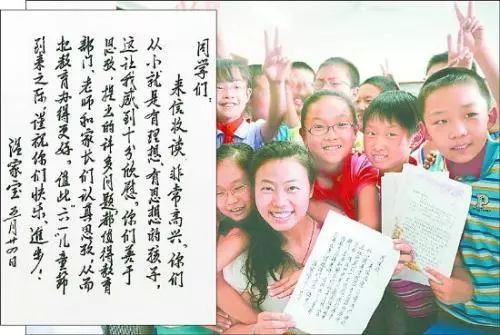 同学们:
来信收读,非常高兴。你们
从小就是有理想、有思想的孩子,
这让我感到十分欣慰。你们善于
思考,提出的许多问题,都值得教育
部门、老师和家长们认真思考,从而
把教育办得更好。值此六一儿童节
到来之际,谨祝你们快乐、进步!
温家宝 五月廿四日